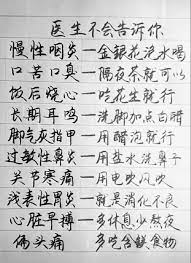 医生不会告诉你
慢性咽炎—金银花泡水喝
口苦口臭—隔夜茶就可以
饭后烧心—吃花生就行
长期耳鸣—洗脚加点白醋
脚气灰指甲—用醋泡就行
过敏性鼻炎—用盐水洗鼻子
关节寒痛—用电吹风吹
浅表性胃炎—就是消化不良
心脏早搏—多休息少熬夜
偏头痛—多吃含镁食物